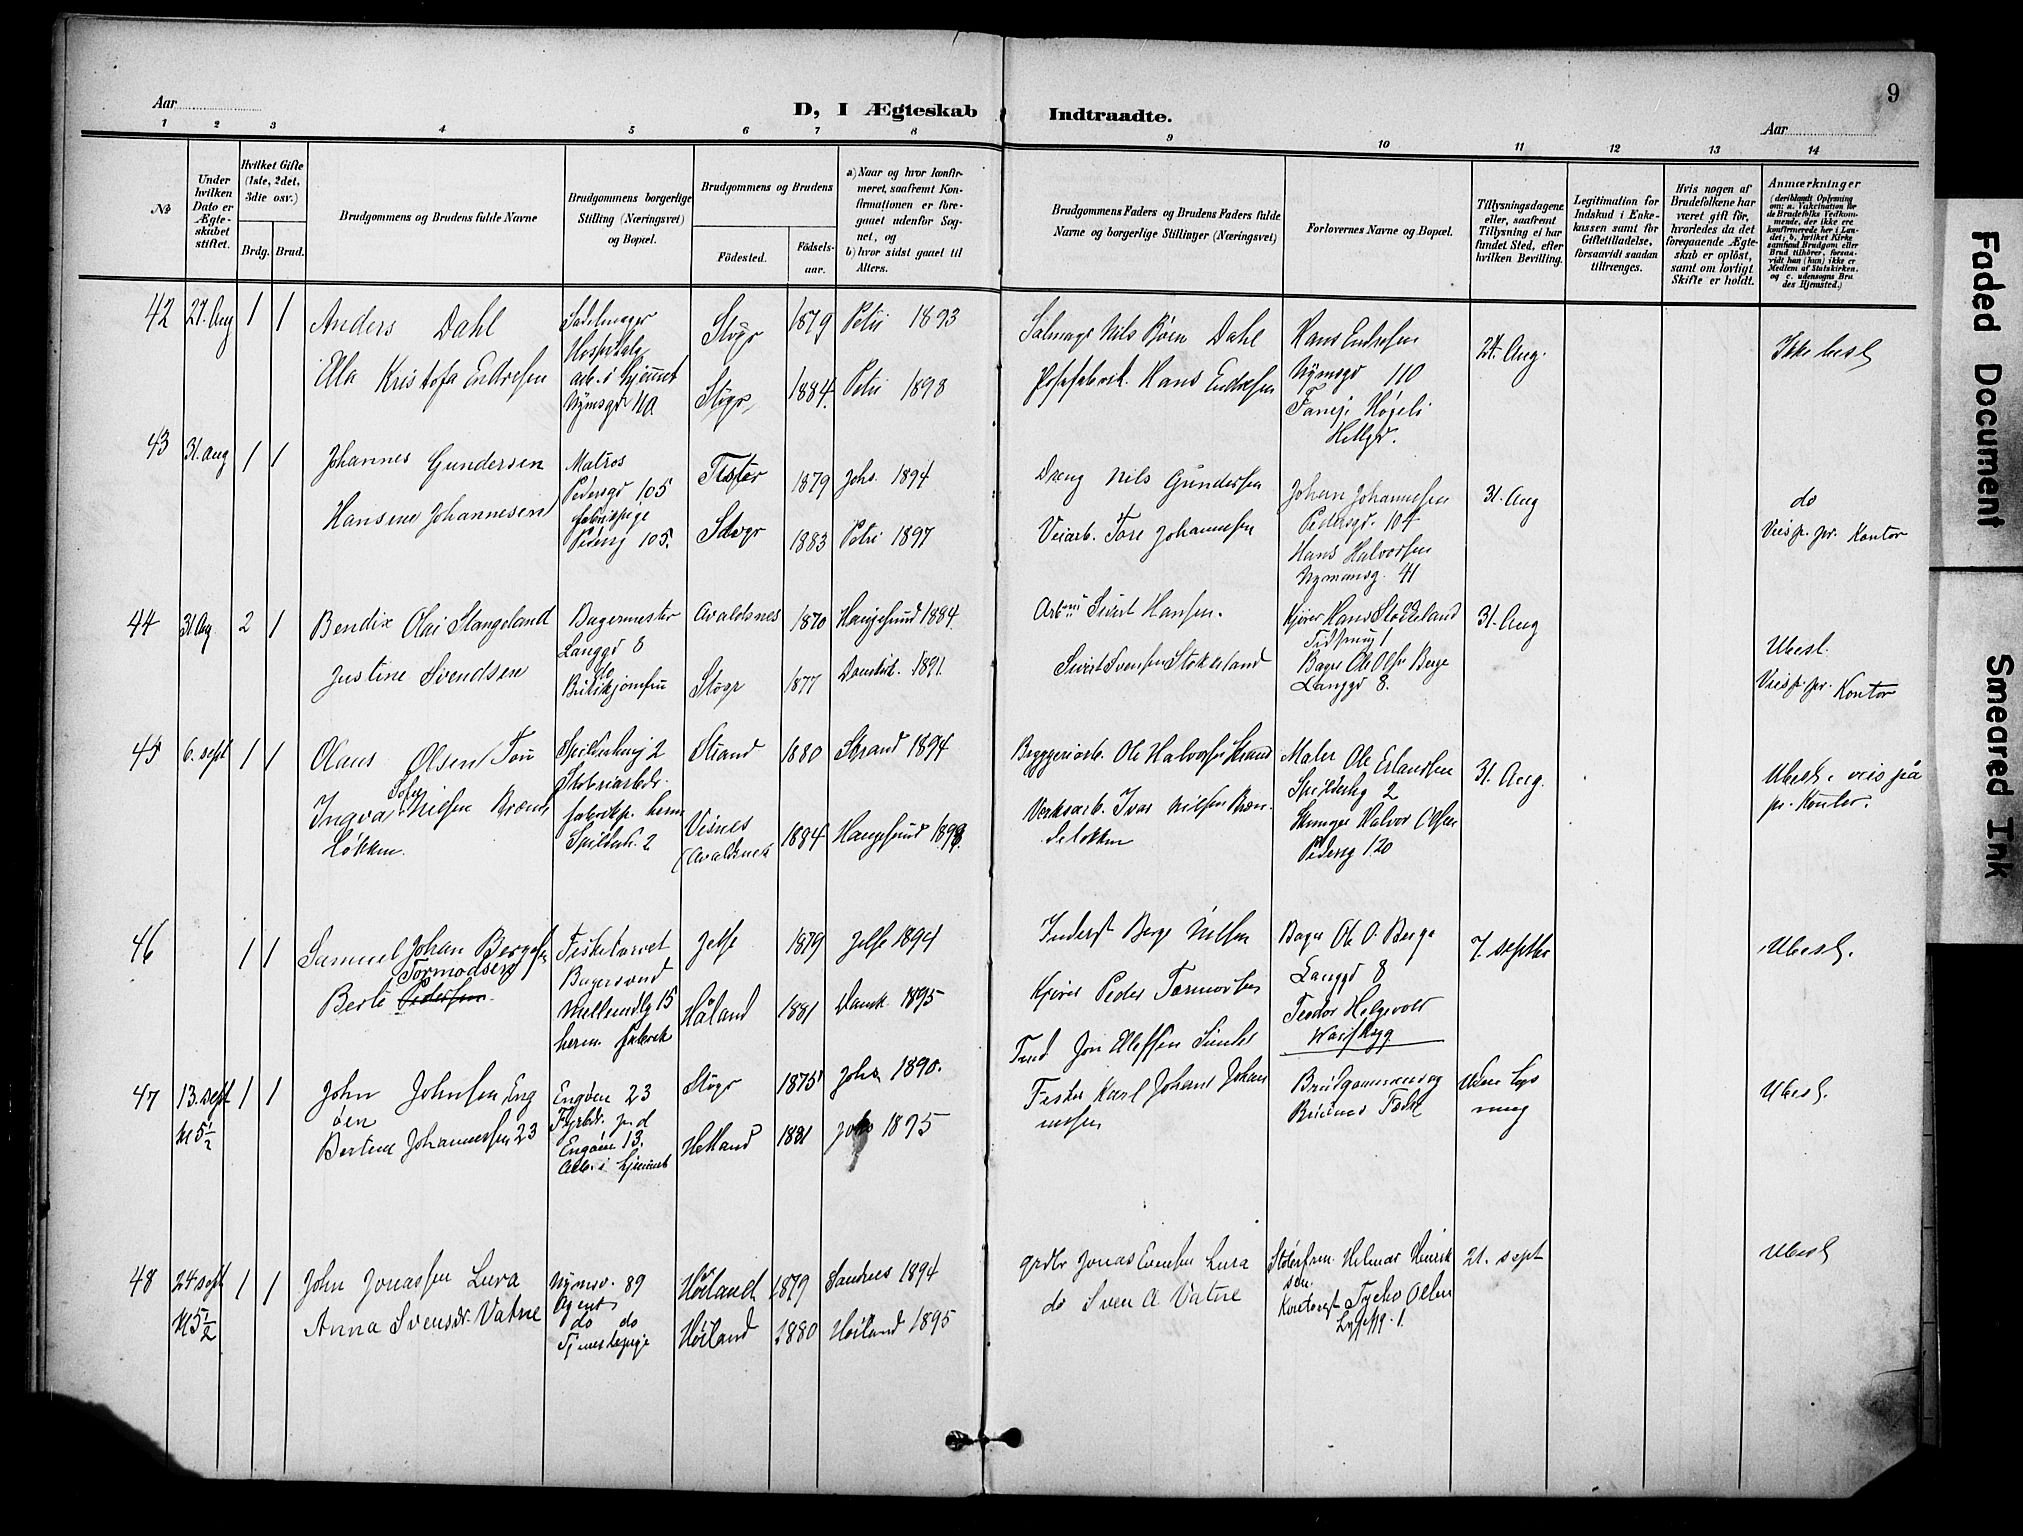 9
Aar
D, I Ægteskab Indtraadte.
Aar
1 2 3 4 5 6 7 8 9 10 11 12 13 14
№
Under hvilken Dato er Ægteskabet stiftet.
Hvilket Gifte (1ste, 2det, 3die osv.)
Brdg. Brud.
Brudgommens og Brudens fulde Navne
Brudgommens borgerlige Stilling (Næringsvei) og Bopæl.
Brudgommens og Brudens
Fødested. Fødselsaar.
a) Naar og hvor konfirmeret, saafremt Konfirmationen er foregaaet udenfor Sognet, og
b) hvor sidst gaaet til Alters.
Brudgommens Faders og Brudens Faders fulde Navne og borgerlige Stillinger (Næringsvei)
Forlovernes Navne og Bopæl.
Tillysningsdagene eller, saafremt Tillysning ei har fundet Sted, efter hvilken Bevilling.
Legitimation for Indskud i Enkekassen samt for Giftetilladelse, forsaavidt saadan tiltrænges.
Hvis nogen af Brudefolkene har været gift før, hvorledes da det foregaaende Ægteskab er opløst, samt om lovligt Skifte er holdt.
Anmærkninger (deriblandt Oplysning om: a. Vakcination for de Brudefolks Vedkommende, der ikke ere konfirmerede her i Landet; b. hvilket Kirkesamfund Brudgom eller Brud tilhører, forsaavidt han (hun) ikke er Medlem af Statskirken, og c. udensogns Brudes Hjemsted.)
42 27. Aug 1 1 Anders Dahl
Stvgr 1879 Petri 1893
Nils Bjørn Dahl
Hans Endresen
110
24. Aug.
Ella Kristofa Endresen
arb. i Hjemmet
Nymsgd 110.
Stvgr 1884. Petri 1898
Hans Endresen
43 31. Aug 1 1 Johannes Gundersen
Matros
Pedersgd 105
1879 Johs. 1894
Dreng Nils Gundersen
Johan Johannesen
Pedersgd. 104
31. Aug
do
Hansine Johannesen
fabrikpige
Pedersg 105.
Stvgr 1883 Petri 1897
Veiarb. Tore Johannesen
Hans Halvorsen
Nymansg. 41
Viesp. pr. Kontor
44 31 Aug 2 1 Bendix Olai Stangeland
Bagermester
Langgd 8
Avaldsnes 1870 Haugesund 1884.
Arbm Sivert Hansen.
Kjører Hans Stokkeland
31. Aug
Ubest.
Justine Svendsen
do
Butikjomfru
Stvgr 1877 Domkirk. 1891.
Sivert Svensen Stokkeland
Bager Ole Olsen Berge
Langgd 8.
Viesp. pr. Kontor
45 6. sept 1 1 Olaus Olsen Tou
2
Strand 1880 Strand 1894
Bryggeriarb. Ole Halvorsen Strand
Maler Ole Erlandsen
2
31. Aug.
Ubest. vies på
pr. Kontor.
Ingva Sofie Nilsen Brænde
løkken.
fabrikp. herm
2
Visnes
(Avaldsnes
1884 Haugesund
Verksarb. Ivar Nilsen Bræn
deløkken
Halvor Olsen
Pedersg 120
46 1 1 Samuel Johan Bergesen
Fisketorvet
Bagersvend
Jelse 1879 Jelse 1894
Inderst Berge Nilsen
Bager Ole O. Berge
Langgd 8
7. septbr
Ubest.
Berte Pedersen Tormodsen
15
herm. fabrik
Håland 1881 Domk. 1895
Kjører Peder Tormodsen
Teodor Helgevold
47 13. sept 1 1
Kl 5½
John Johnsen Eng
øen
Engøen 23
Stvgr 1875 Johs 1890.
Jon Ellefsen
Brudgommens og
Brudens Fædre
Uden Lys
ning
Ubest.
Bertine Johannessen 23
Engøen 13.
Arb. i hjemmet
Hetland 1881 Johs 1895
Fisker Karl Johan Johan
nessen
48 24 sept 1 1
Kl 5½
John Jonassen Lura
Nymsv. 89
Agent
Høiland 1879 Sandnes 1894
grdbr Jonas Evensen Lura
Helmer Henrik
sen.
21. sept
Ubest
Anna Svensdr. Vatne
do do
Tjenestepige
Høiland 1880 Høiland 1895
do Sven A. Vatne
Kontorist Tycho Olsen
Faded Document
Smeared Ink